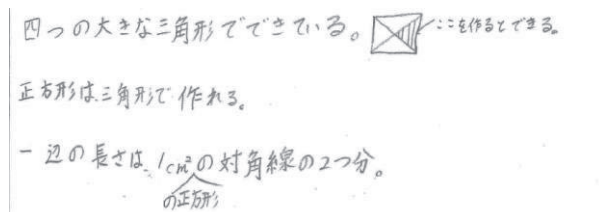 四つの大きな三角形でできている。 ここを作るとできる。
正方形は三角形で作れる。
一辺の長さは、1cm²の対角線の2つ分。
の正方形